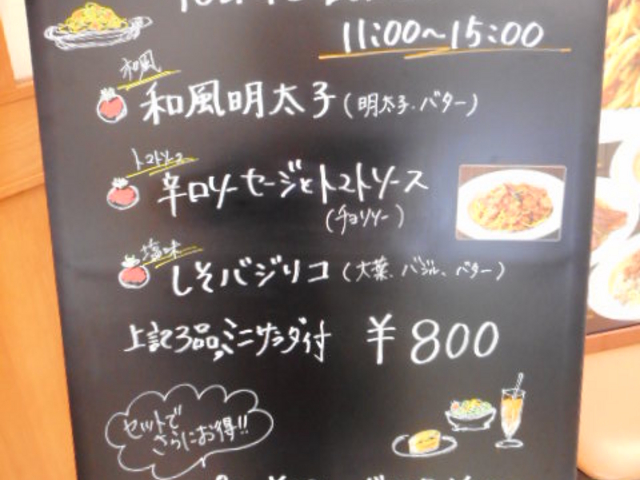 11:00～15:00
和風
和風明太子(明太子、バター)
トマトソース
辛口ソーセージとトマトソース
(チョリソー)
塩味
しそバジリコ(大葉、バジル、バター)
上記3品、ミニサラダ付 ¥800
セットで
さらにお得!!